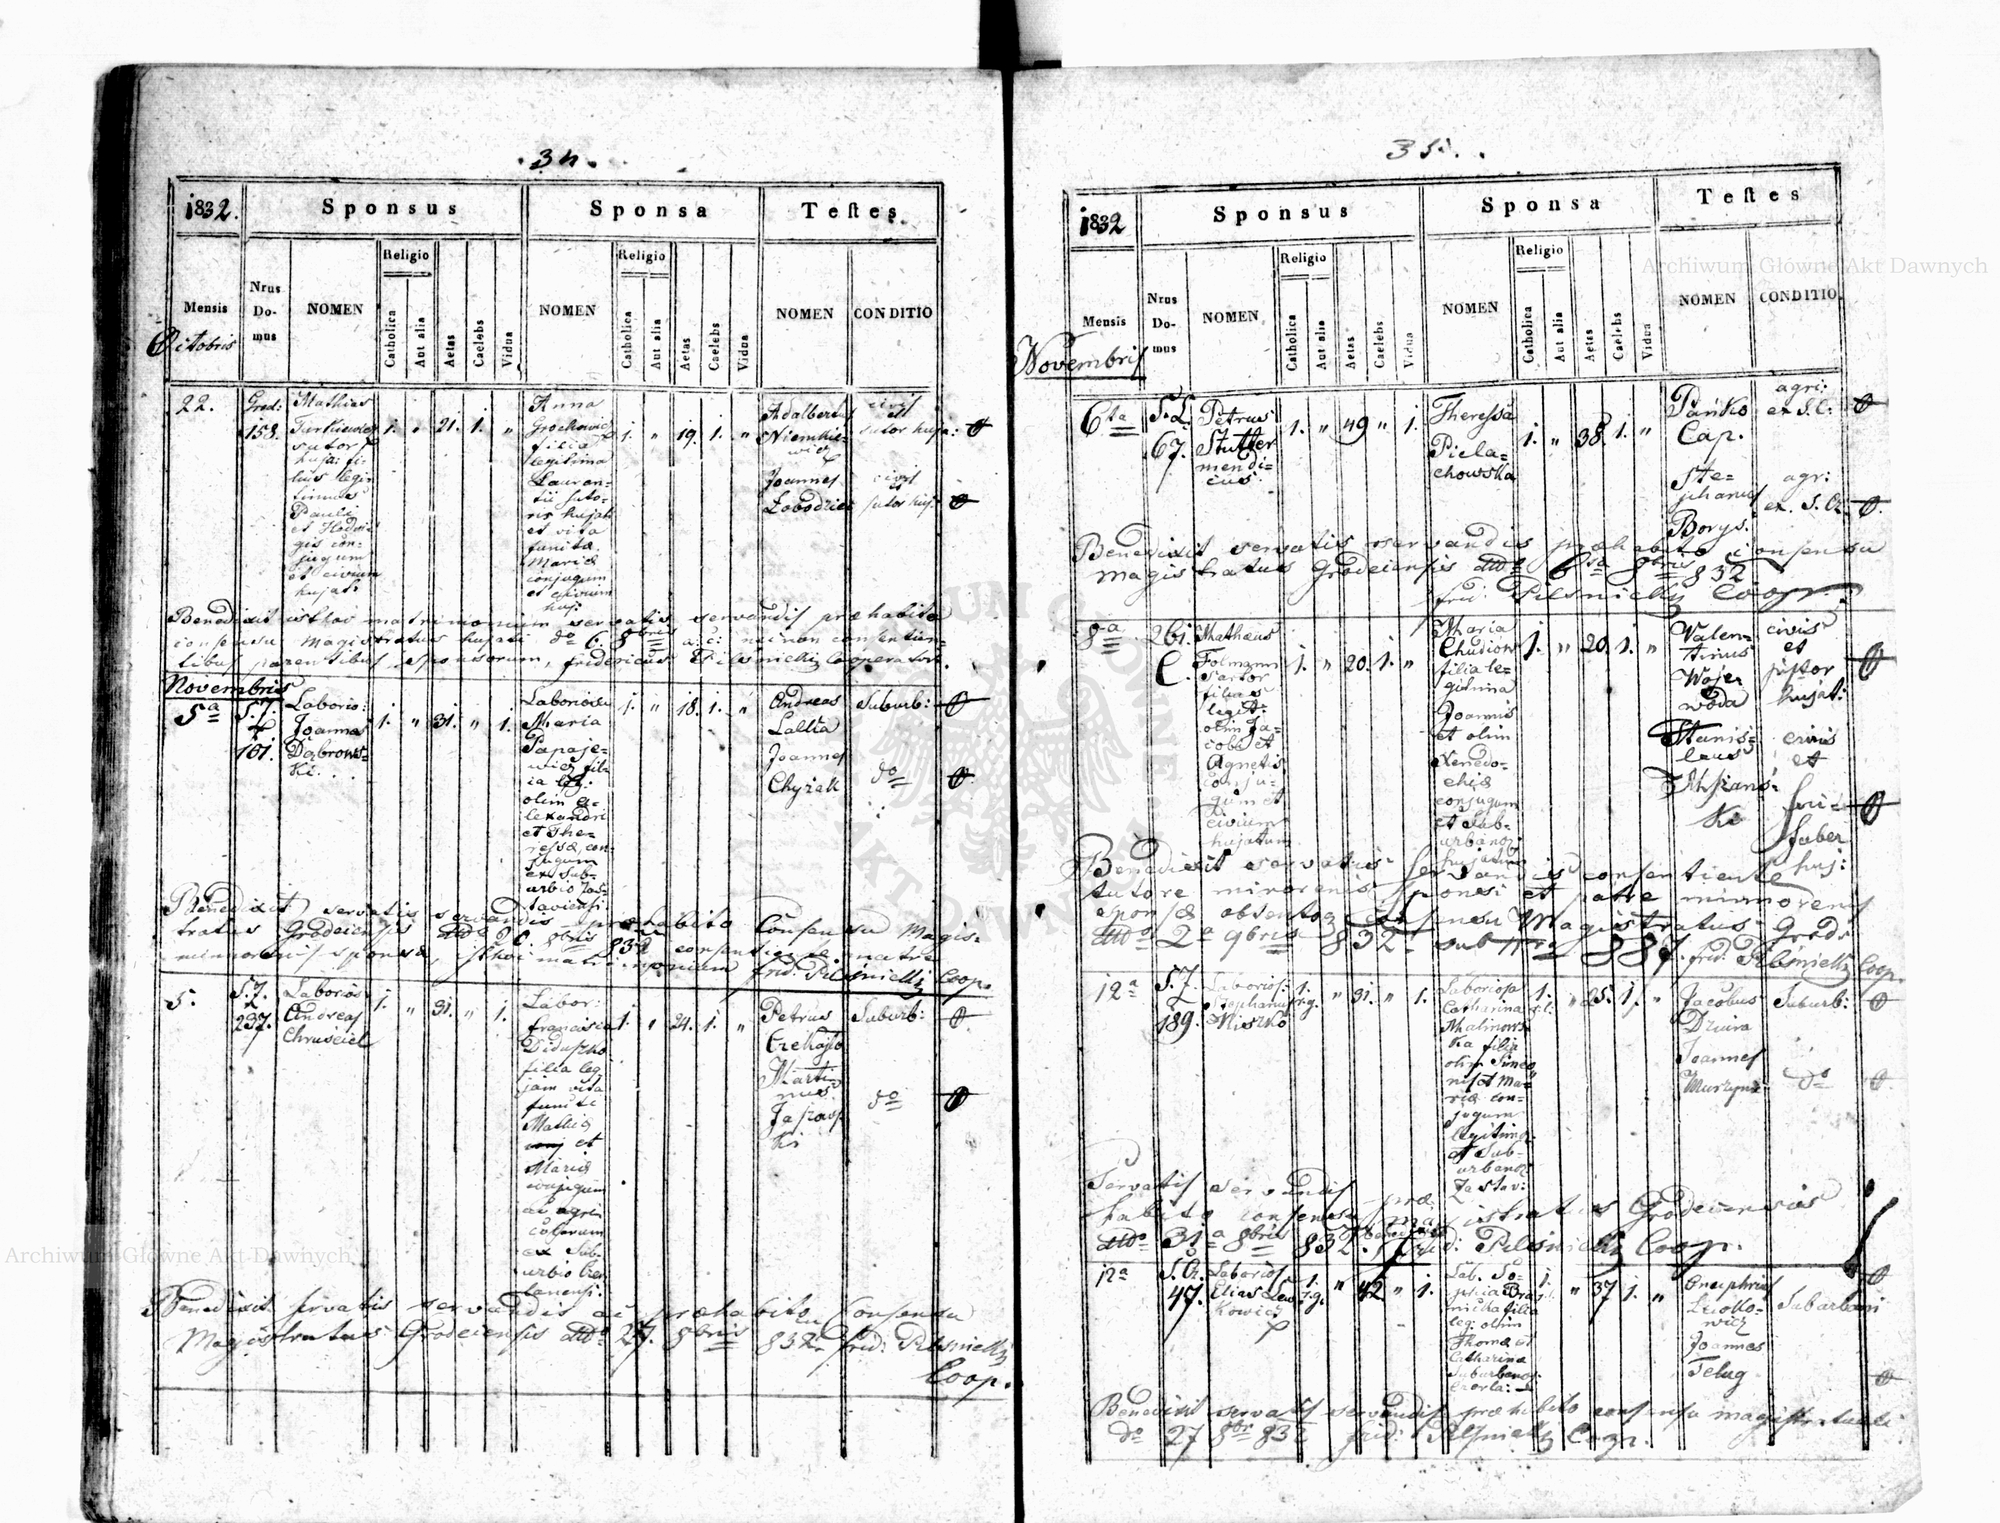 . 34 .
1832.
Sponsus
Sponsa
Testes
Mensis
Octobris
Nrus
Do-
mus
NOMEN
Religio
Catholica
Aut alia
Aetas
Caelebs
Vidua
NOMEN
Religio
Catholica
Aut alia
Aetas
Caelebs
Vidua
NOMEN
CONDITIO
22.
Grod:
158.
Mathias
sutor
huja: fi-
lius legi-
timus
Pauli
et Hedvi-
gis con-
jugum
et civium
hujat:
1. " 21. 1. "
Anna
Grochowicz
filia
legitima
Lauren-
tii suto-
ris hujat
et vita
functa
Maria
conjugum
et civium
huj:
1. " 19. 1. "
Adalbertus
Niemkie-
wicz
civis
et
sutor huja:
Joannes
Łobodzic
civis
et
sutor huj:
Benedixit isthoc matrimonium servatis servandis præhabito
consensu Magistratus hujati do 6. 8bris a. c: necnon consentien-
tibus parentibus sponsorum, fridericus Pilsnicki Cooperator.
Novembris
5a
S. Z.
161.
Laborio:
Joannes
Dąbrows-
ki.
1. " 31. " 1.
Laboriosa
Maria
Papaje-
wicz fil-
ia leg:
olim A-
lexandri
et The-
ressæ con-
jugum
ex Sub-
urbio Zas-
taviensi
1. " 18. 1. "
Andreas
Lalka
Suburb:
Joannes
Chyzak
do
Benedixit servatis servandis præhabito Consensu Magis-
tratus Grodeiensis ddto 6. 8bris 832 consentiente matre
minorenis sponsæ, isthoc matrimonium frid: Pilsnicki Coop.
5.
S. Z.
237.
Laborios
Andreas
Chruściel
1. " 31. " 1.
Labor:
francisca
Diduszko
filia leg
jam vita
functi
Mathiæ
conj et
Mariæ
conjugum
ac agri
colarum
ex Sub-
urbio Czer
lanensi.
1. " 24. 1. "
Petrus
Czehajło
Suburb:
Marti-
nus
do
Benedixit servatis servandis ac præhabito Consensu
Magistratus Grodeiensis ddto 27. 8bris 832. frid: Pilsnicki
Coop.
35. .
1832
Sponsus
Sponsa
Testes
Mensis
Novembris
Nrus
Do-
mus
NOMEN
Religio
Catholica
Aut alia
Aetas
Caelebs
Vidua
NOMEN
Religio
Catholica
Aut alia
Aetas
Caelebs
Vidua
NOMEN
CONDITIO
6ta
67.
Petrus
Stutter
mendi=
cus.
1. " 49 " 1.
Theressa
Piela-
chowska
1. " 38. 1. "
Pańko
Cap.
agri:
ex S. C:
Ste-
phanus
Borys.
agr:
ex. S. Cz.
Benedixit servatis servandis præhabito consensu
magistratus Grodeiensis ddto 6ta 8bris 832
frid: Pilsnicki Coop.
8a
261.
C.
Matheus
Folmann
sartor
filius
legit:
olim Ja-
cobi et
Agnetis
conju-
gum et
civium
hujatum
1. " 20. 1. "
Maria
Chudiow
filia le-
gitima
Joannis
et olim
Xenedo-
chiæ
conjugum
et Sub-
urbanor
hujatum
1. " 20. 1. "
Valen-
tinus
Wojer
woda
civis
et
pistor
hujat:
Stanis-
laus
civis
et
faber
huj:
Benedixit servatis servandis consentiente
tutore minorenis sponsi et patre minorenis
sponsæ obtento Consensu Magistratus Grod:
ddto 2a 9bris 832 sub Nro 887. frid: Pilsnicki Coop.
12a
S. Z.
189.
Laborios:
Stephanus
Miszko
1.
r. g.
" 31. " 1.
Laboriosa
Catharina
Malinows
ka filia
olim Simeo
nis et Ma-
riæ con-
jugum
legitima
et Sub-
urbanor
Zastav:
1.
" 25. 1. "
Jacobus
Dziura
Suburb:
Joannes
Murzyn
do
Servatis servandis præ
habito consensu magistratus Grodeiensis
ddto 31a 8bris 832. benedixit frid: Pilsnicki Coop.
12a
S. Cz.
47.
Laborios
Elias Lew
kowicz
1.
r. g.
" 42 " 1.
Lab. So-
phia Bra-
nicka filia
leg: olim
Thomæ et
Catharinæ
Suburbanor
Czerla:
1. " 37 1. "
Onuphrius
wicz
Suburbani
Joannes
Telug
Benedixit servatis servandis præhabito consensu magistratuali
do 27 8br 832 frid: Pilsnicki Coop.
Archiwum Główne Akt Dawnych
Archiwum Główne Akt Dawnych